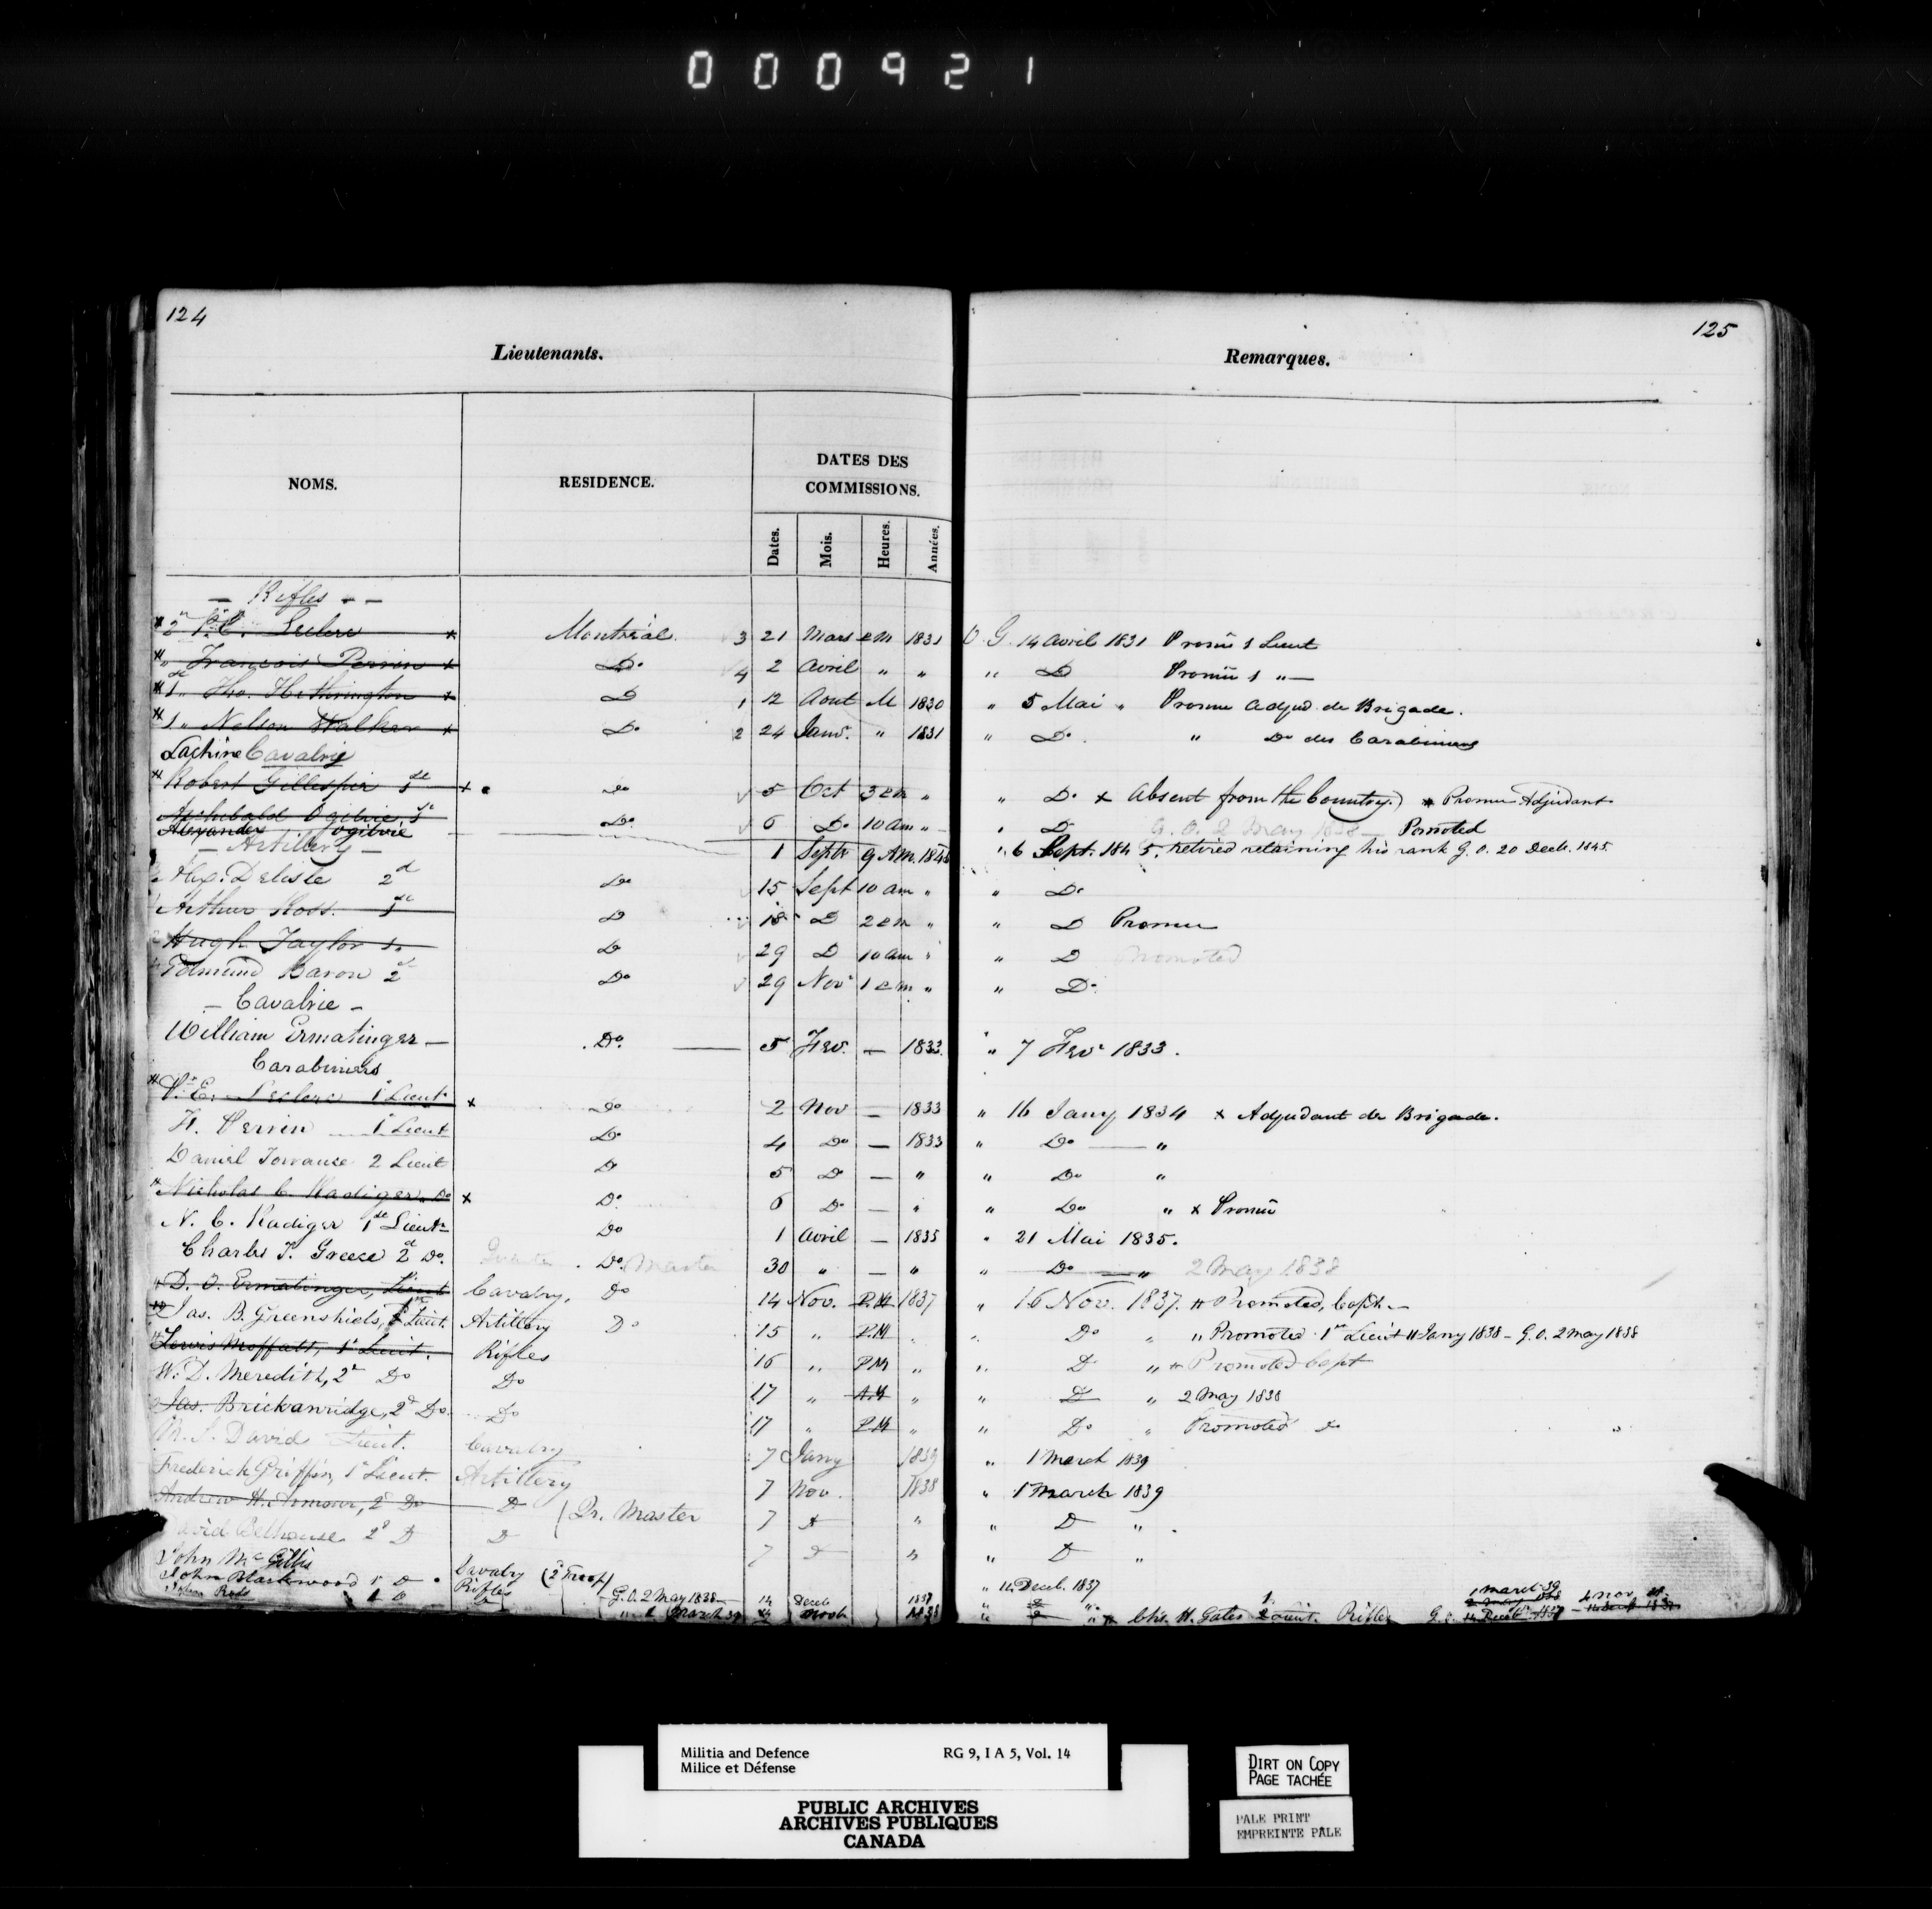 000921
124
Lieutenants.
NOMS. RESIDENCE. DATES DES COMMISSIONS.
Dates. Mois. Heures. Années.
— Rifles — —
2d P. E. Leclere Montréal 3 21 Mars 1831
" Francois Perrin Do 4 2 Avril " "
1 " Tho. Hethrington D 1 12 Aout M 1830
1 " Nelson Walker Do 2 24 Janv. " 1831
Lachine Cavalry
Robert Gillespie Do 5 Oct "
Archibald Ogilvie Do 6 Do 10 am "
Alexander Ogilvie 1 Septr 9 A.M.
— Artillery —
Alex. Delisle 2d Do 15 Sept 10 am "
Arthur Ross D 18 D "
Hugh Taylor D 29 D 10 am "
Edmund Baron 2d Do 29 Nov "
— Cavalrie —
William Ermatinger — Do 5 Fev. — 1833.
Carabiniers
P. E. Leclere 1 Lieut Do 2 Nov — 1833
F. Perrin 1 Lieut Do 4 Do — 1833
Daniel Torrance 2 Lieut D 5 D — "
Nicholas C. Radiger Do Do 6 Do — "
N. C. Radiger 1 Lieut Do 1 Avril — 1835
Charles T. Greece 2d Do. Do Master 30 " — "
D. O. Ermatinger, Lieut Cavalry, Do 14 Nov. P.M 1837
Jas. B. Greenshiels, Lieut. Artillery Do 15 " P.M "
Lewis Moffatt, 1 Lieut. Rifles 16 " P.M "
W. D. Meredith, 2d Do Do 17 " A.M "
Jas. Brickanridge, 2d Do. Do 17 " P.M "
M. S. David Lieut. Cavalry 7 Jany 1839
Frederick Griffin, 1 Lieut. Artillery 7 Nov. 1838
Andrew H. Armour, 2d Do D Qr. Master 7 D "
David Bethune 2d D D 7 D "
John McGillis Cavalry (2d Troop)
John Blackwood 1 D Rifles G.O. 2 May 1838 14 Decb 1837
Ross 1 D " 1 March 39 1838
125
Remarques.
O. G. 14 Avril 1831 Promû 1 Lieut
" D Promû 1 " —
" 5 Mai " Promu Adjud. de Brigade.
" Do. " Do des Carabiniers
" Do x Absent from the Country) * Promu Adjudant
" D G. O. 2 May 1838 — Promoted
" 6 Sept. 1845. retired retaining his rank G. O. 20 Decb. 1845.
" Do
" D Promu
" D Promoted
" Do
" 7 Fevr 1833.
" 16 Jany 1834 x Adjudant de Brigade.
" Do — "
" Do "
" Do " x Promû
" 21 Mai 1835.
" Do — " 2 May 1838
" 16 Nov. 1837. Promoted, Capt. —
" Do " " Promoted 1st Lieut 11 Jany 1838 – G. O. 2 May 1838
" D " Promoted Capt
" D " 2 May 1838
" Do " Promoted Do "
" 1 March 1839
" 1 March 1839
" D " .
" D "
" 14 Decb. 1837
" " Chs. H. Gates 2 Lieut. Rifles G. O. 1 March 39 4 Nov
Militia and Defence RG 9, I A 5, Vol. 14
Milice et Défense
PUBLIC ARCHIVES
ARCHIVES PUBLIQUES
CANADA
DIRT ON COPY
PAGE TACHÉE
PALE PRINT
EMPREINTE PÂLE